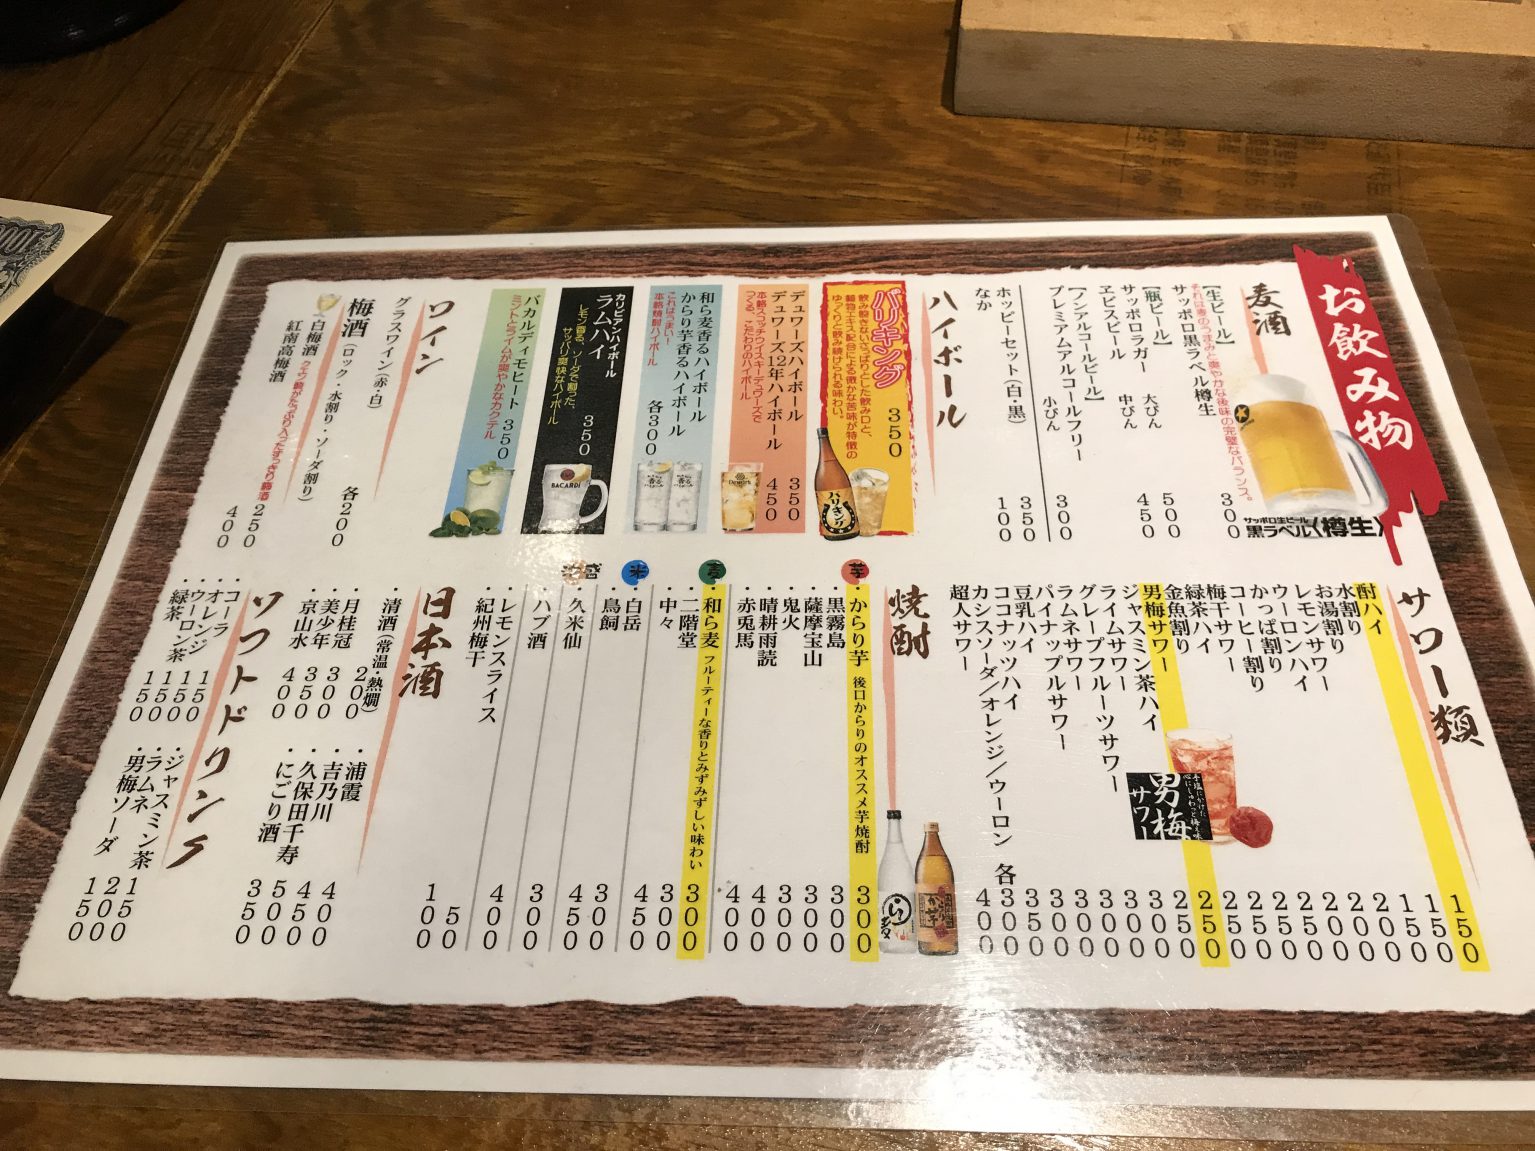 お飲み物
麦酒
【生ビール】
それは麦のうまみと爽やかな後味の完璧なバランス。
サッポロ黒ラベル樽生 300
【瓶ビール】
サッポロラガー 大びん 500
ヱビスビール 中びん 450
【ノンアルコールビール】
プレミアムアルコールフリー 小びん 300
ホッピーセット(白・黒) 350
なか 100
サッポロ生ビール
黒ラベル〈樽生〉
ハイボール
バリキング 350
飲み飽きないさっぱりとした飲み口と、
植物エキス配合による微かな苦味が特徴の
ゆっくりと飲み続けられる味わい。
バリキング
デュワーズハイボール 350
デュワーズ12年ハイボール 450
本格スコッチウイスキーデュワーズで
つくる、こだわりのハイボール
和ら麦香るハイボール
からり芋香るハイボール 各300
これはうまい!
本格焼酎ハイボール
カリビアンハイボール
ラムハイ 350
レモン香る、ソーダで割った、
サッパリ爽快なハイボール
BACARDI
バカルディモヒート 350
ミントとライムが爽やかなカクテル
ワイン
グラスワイン(赤・白) 各200
梅酒(ロック・水割り・ソーダ割り)
白梅酒 250
紅南高梅酒 400
サワー類
酎ハイ 150
水割り 150
お湯割り 150
レモンサワー 200
ウーロンハイ 200
かっぱ割り 200
コーヒー割り 250
梅干サワー 250
緑茶ハイ 250
金魚割り 250
男梅サワー 250
ジャスミン茶ハイ 250
ライムサワー 300
グレープフルーツサワー 300
ラムネサワー 300
パイナップルサワー 300
豆乳ハイ 350
ココナッツハイ 300
カシスソーダ/オレンジ/ウーロン 各300
超人サワー 400
男梅
サワー
焼酎
芋
・からり芋 後口からりのオススメ芋焼酎 300
・黒霧島 300
・薩摩宝山 300
・鬼火 300
・晴耕雨読 400
・赤兎馬 400
麦
・和ら麦 フルーティーな香りとみずみずしい味わい 300
・二階堂 300
・中々 300
米
・白岳 450
・鳥飼 300
泡盛
・久米仙 450
・ハブ酒 300
・レモンスライス 400
・紀州梅干
50
100
日本酒
・清酒(常温・熱燗) 200
・月桂冠 300
・美少年 350
・京山水 400
・浦霞 400
・吉乃川 450
・久保田千寿 500
・にごり酒 350
ソフトドリンク
・コーラ 150
・オレンジ 150
・ウーロン茶 150
・緑茶 150
・ジャスミン茶 150
・ラムネ 200
・男梅ソーダ 150